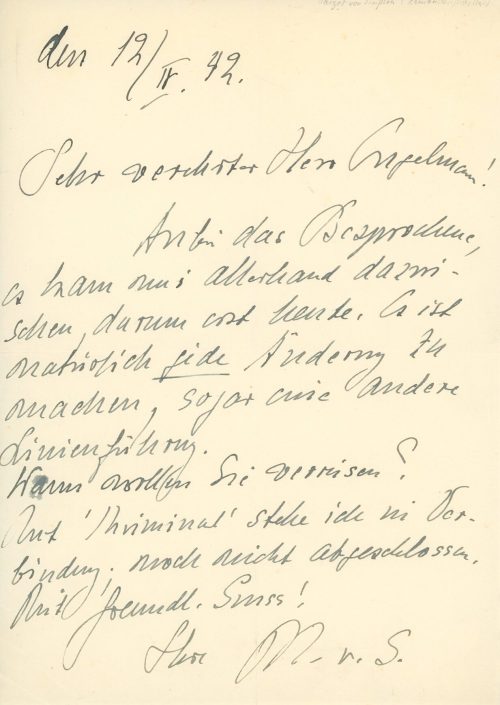 den 12/IV. 42.
Sehr verehrter Herr Engelman!
Anbei das Besprochene,
es kam mir allerhand dazwi-
schen, darum erst heute. Es ist
natürlich jede Änderung zu
machen, sogar eine andere
Linienführung.
Wann wollen Sie verreisen?
Mit 'Kriminal' stehe ich in Ver-
bindung, noch nicht abgeschlossen.
Mit freundl. Gruss!
Ihre M. v. S.